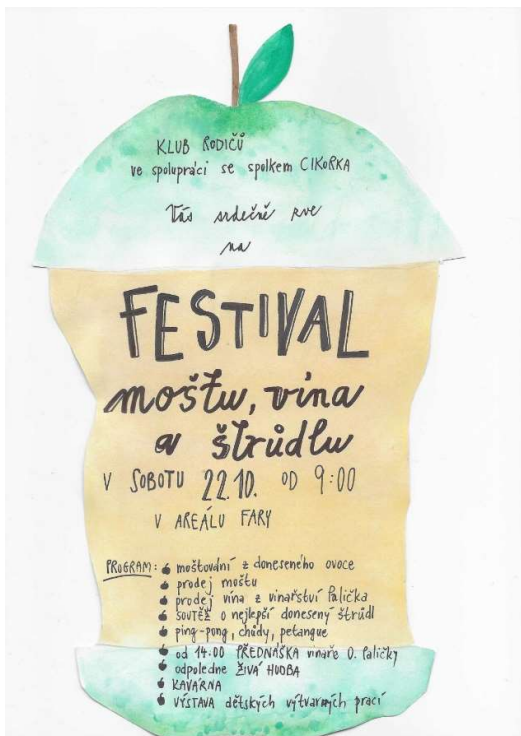 KLUB RODIČŮ
ve spolupráci se spolkem CIKORKA
Vás srdečně zve
na
FESTIVAL
moštu, vína
a štrůdlu
V SOBOTU 22.10. OD 9:00
V AREÁLU FARY
PROGRAM: moštování z doneseného ovoce
prodej moštu
prodej vína z vinařství Palička
SOUTĚŽ o nejlepší donesený štrůdl
ping-pong, chůdy, petangue
od 14.00 PŘEDNÁŠKA vinaře O. Paličky
odpoledne ŽIVÁ HUDBA
KAVÁRNA
VÝSTAVA dětských výtvarných prací